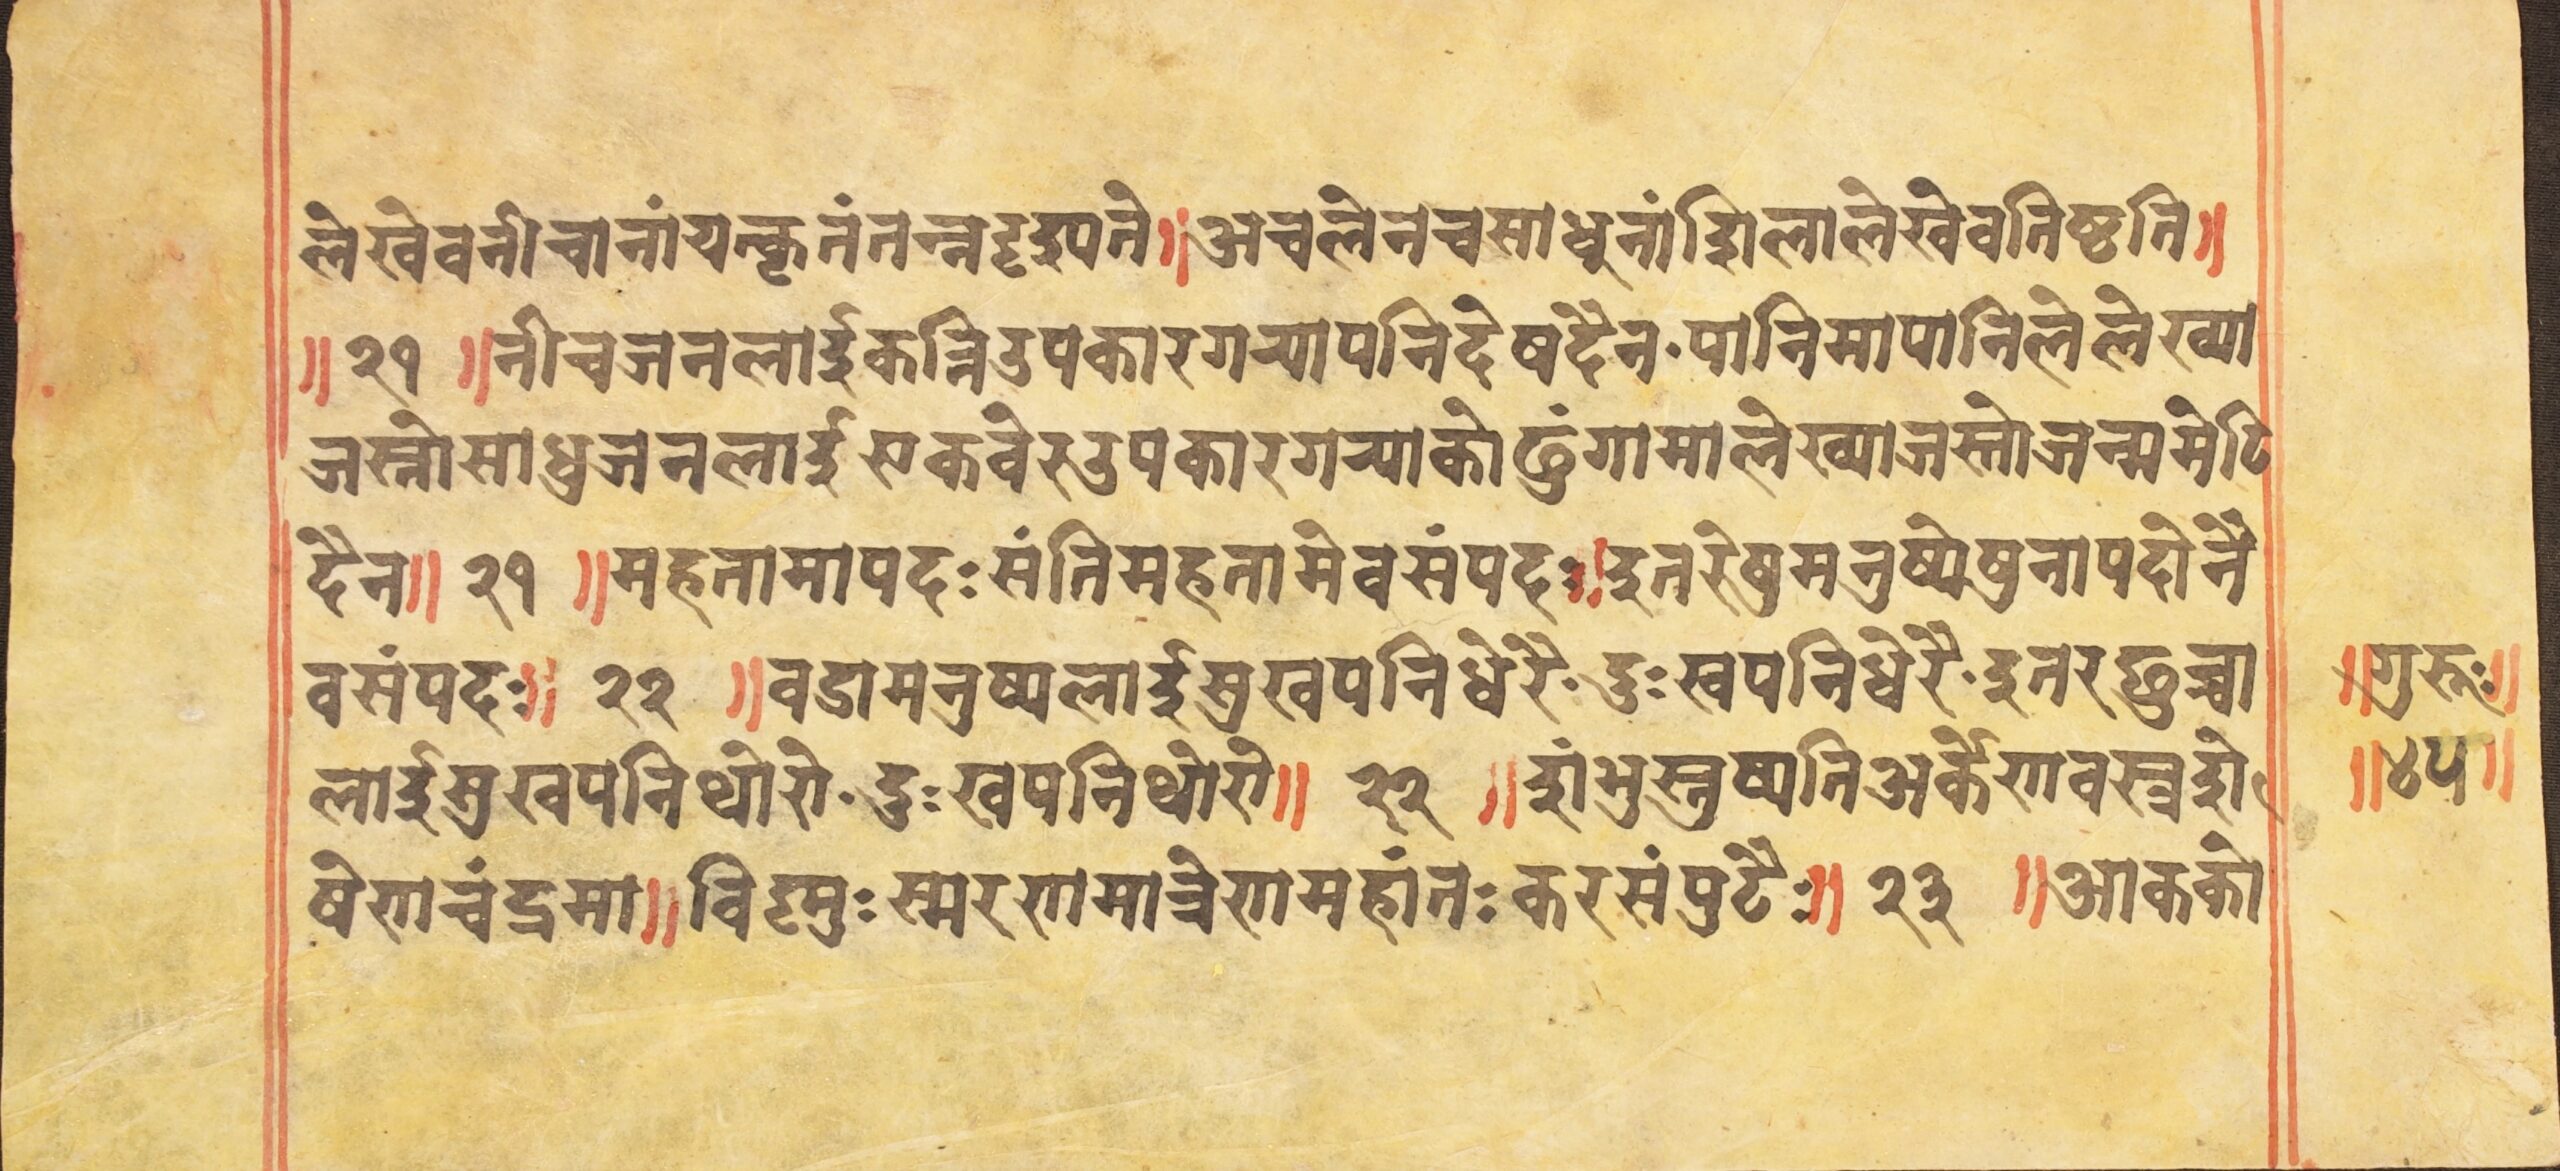 लेखेवनीचानांयत्कृतंतन्नदृश्यते॥अचलेनचसाधूनांशिलालेखेवतिष्ठति॥
॥२१ ॥नीचजनलाईकत्तिउपकारगर्‍यापनिदेषदैन·पानिमापानिलेलेख्या
जस्तोसाधुजनलाईएकवेरउपकारगर्‍याकोढुंगामालेख्याजस्तोजन्ममेटि
दैन॥ २१ ॥महतामापदःसंतिमहतामेवसंपदः॥इतरेषुमनुष्येषुनापदोनै
वसंपदः॥ २२ ॥वडामनुष्यलाईसुखपनिधेरै·दुःखपनिधेरै·इतरछुच्चा
लाईसुखपनिथोरो·दुःखपनिथोरो॥ २२ ॥शंभुस्तुष्यतिअर्केणवस्त्रशे
षेणचंद्रमा॥विदृमुःस्मरणमात्रेणमहांतःकरसंपुटैः॥ २३ ॥आकको
॥गुरूः॥
॥४५॥